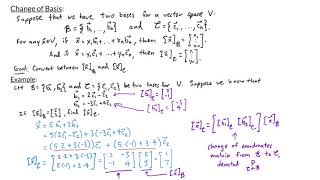 Change of Basis:
Suppose that we have two bases for a vector space V.
B = {b⃗₁, ..., b⃗ₙ} and C = {c⃗₁, ..., c⃗ₙ}
For any x⃗∈V, if x⃗ = y₁b⃗₁ + ... + yₙb⃗ₙ, then [x⃗]_B = [y₁ ⋮ yₙ].
and if x⃗ = c⃗₁ + ... + c⃗ₙ, then [x⃗]_C =
Goal: Convert between [x⃗]_B and [x⃗]_C
Example:
Let B = {b⃗₁, b⃗₂} and C = {c⃗₁, c⃗₂} be two bases for V. Suppose we know that
b⃗₁ = 2c⃗₁ - c⃗₂
b⃗₂ = -3c⃗₁ + 4c⃗₂
If [x⃗]_B = [5 3], find [x⃗]_C
x⃗ = 5b⃗₁ + 3b⃗₂
= 5(2c⃗₁ - c⃗₂) + 3(-3c⃗₁ + 4c⃗₂)
= (5·2 + 3(-3))c⃗₁ + (5·(-1) + 3·4)c⃗₂
[x⃗]_C = [5·2 + 3(-3) 5·(-1) + 3·4] = [2 -3 -1 4][5 3] = [1 7]
[x⃗]_C = [[b⃗₁]_C [b⃗₂]_C][x⃗]_B
change of coordinates
matrix from B to C,
denoted